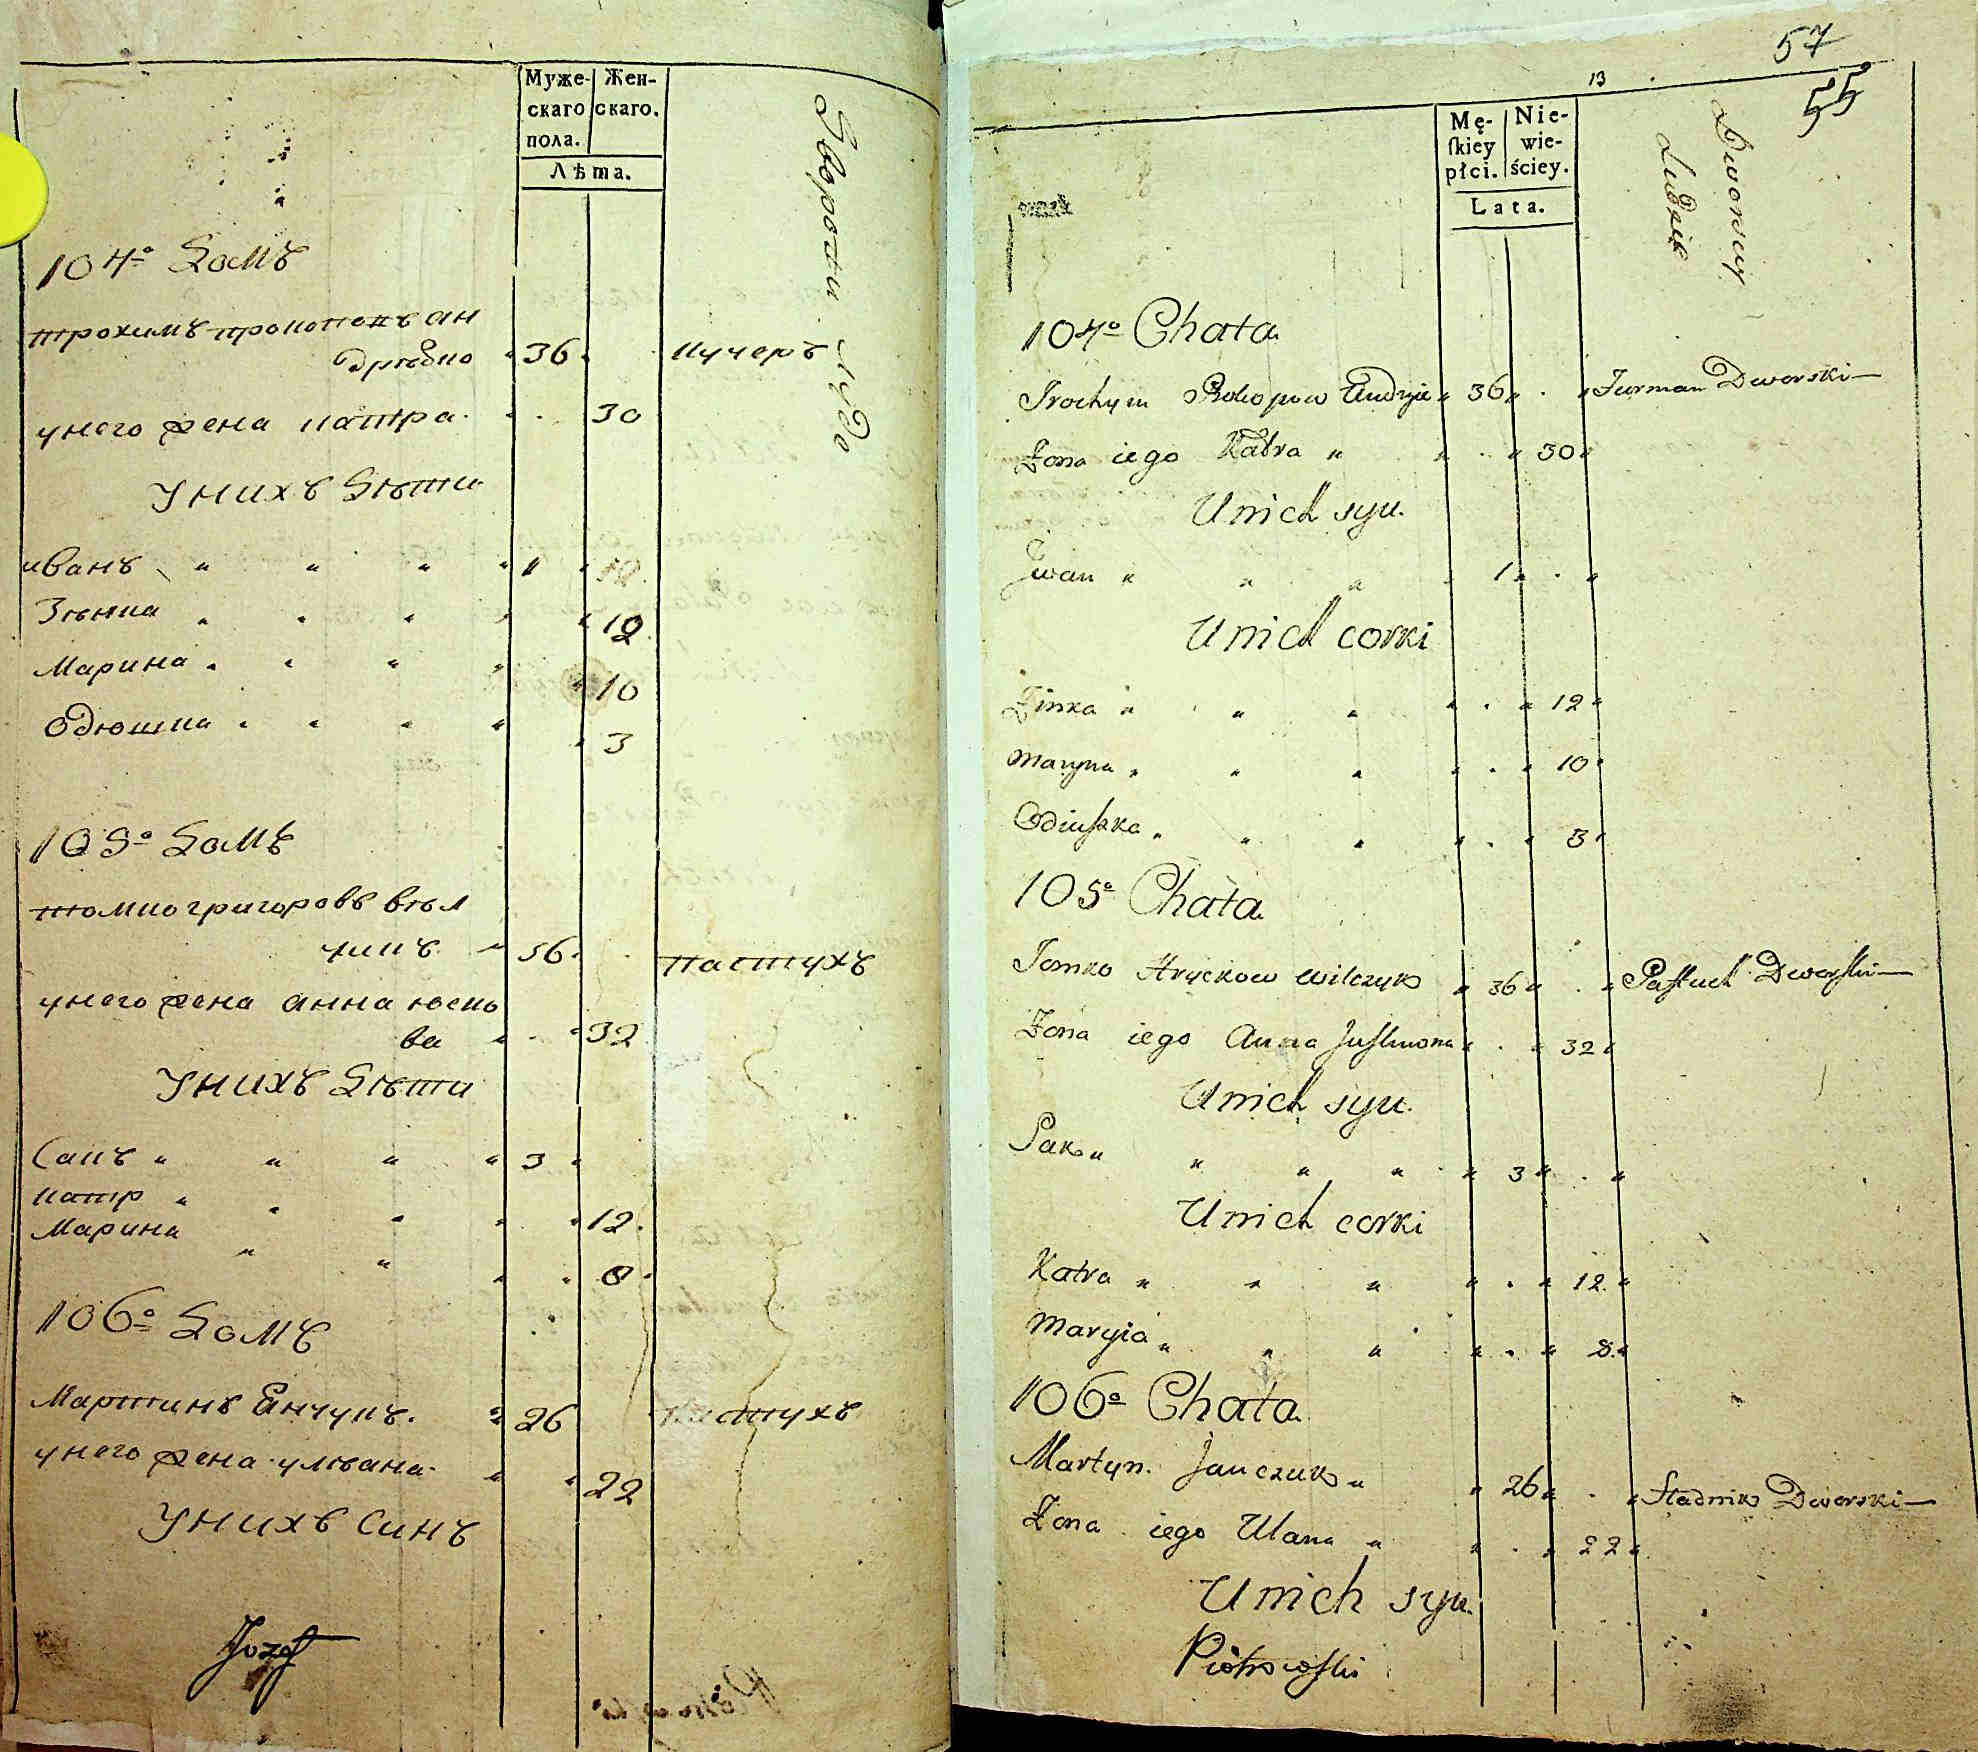 Муже-
скаго
пола.
Жен-
скаго.
Лѣта.
104º Домъ
трохимъ прокопокъ ан
дрѣвио " 36 " кучеръ
унего жена катра 30
Унихъ Дѣти
иванъ " " " " 1 "
Зѣнка " " " " 12
Марина " " " " 10
Одюшка " " " " 3
105º Домъ
томко григоровъ вѣл
чикъ " 36 " пастухъ
унего жена анна юско
ва " " 32
Унихъ Дѣти
Сакъ " " " " 3 "
катр " " " " " 12
Марина " " " " 8
106º Домъ
Мартинъ Янчукъ " 26 пастухъ
унего жена уляана " " 22
Унихъ Синъ
Jozef
57
13
55
Mę-
skiey
płci.
Nie-
wie-
ściey.
Lata.
Dworscy
Ludzie
104º Chata
Trochym Prokopow Andryie " 36 " . " Furman Dworski
Żona iego Katra " " . " 30 "
Unich syn.
Jwan " " " . 1 " . "
Unich corki
Zinka " " " " . " 12 "
Maryna " " " " . " 10 "
Odiuszka " " " " . " 3 "
105º Chata
Tomko Hryckow Wilczyk " 36 " . " Pastuch Dworski
Żona iego Anna Juskowa " . " 32 "
Unich syn.
Sak " " " " " 3 " . "
Unich corki
Katra " " " " . " 12 "
Maryia " " " " . " 8 "
106º Chata
Martyn Janczuk " " 26 " . " Stadnik Dworski
Żona iego Ulana " " . " 22 "
Unich syn.
Piotrowski